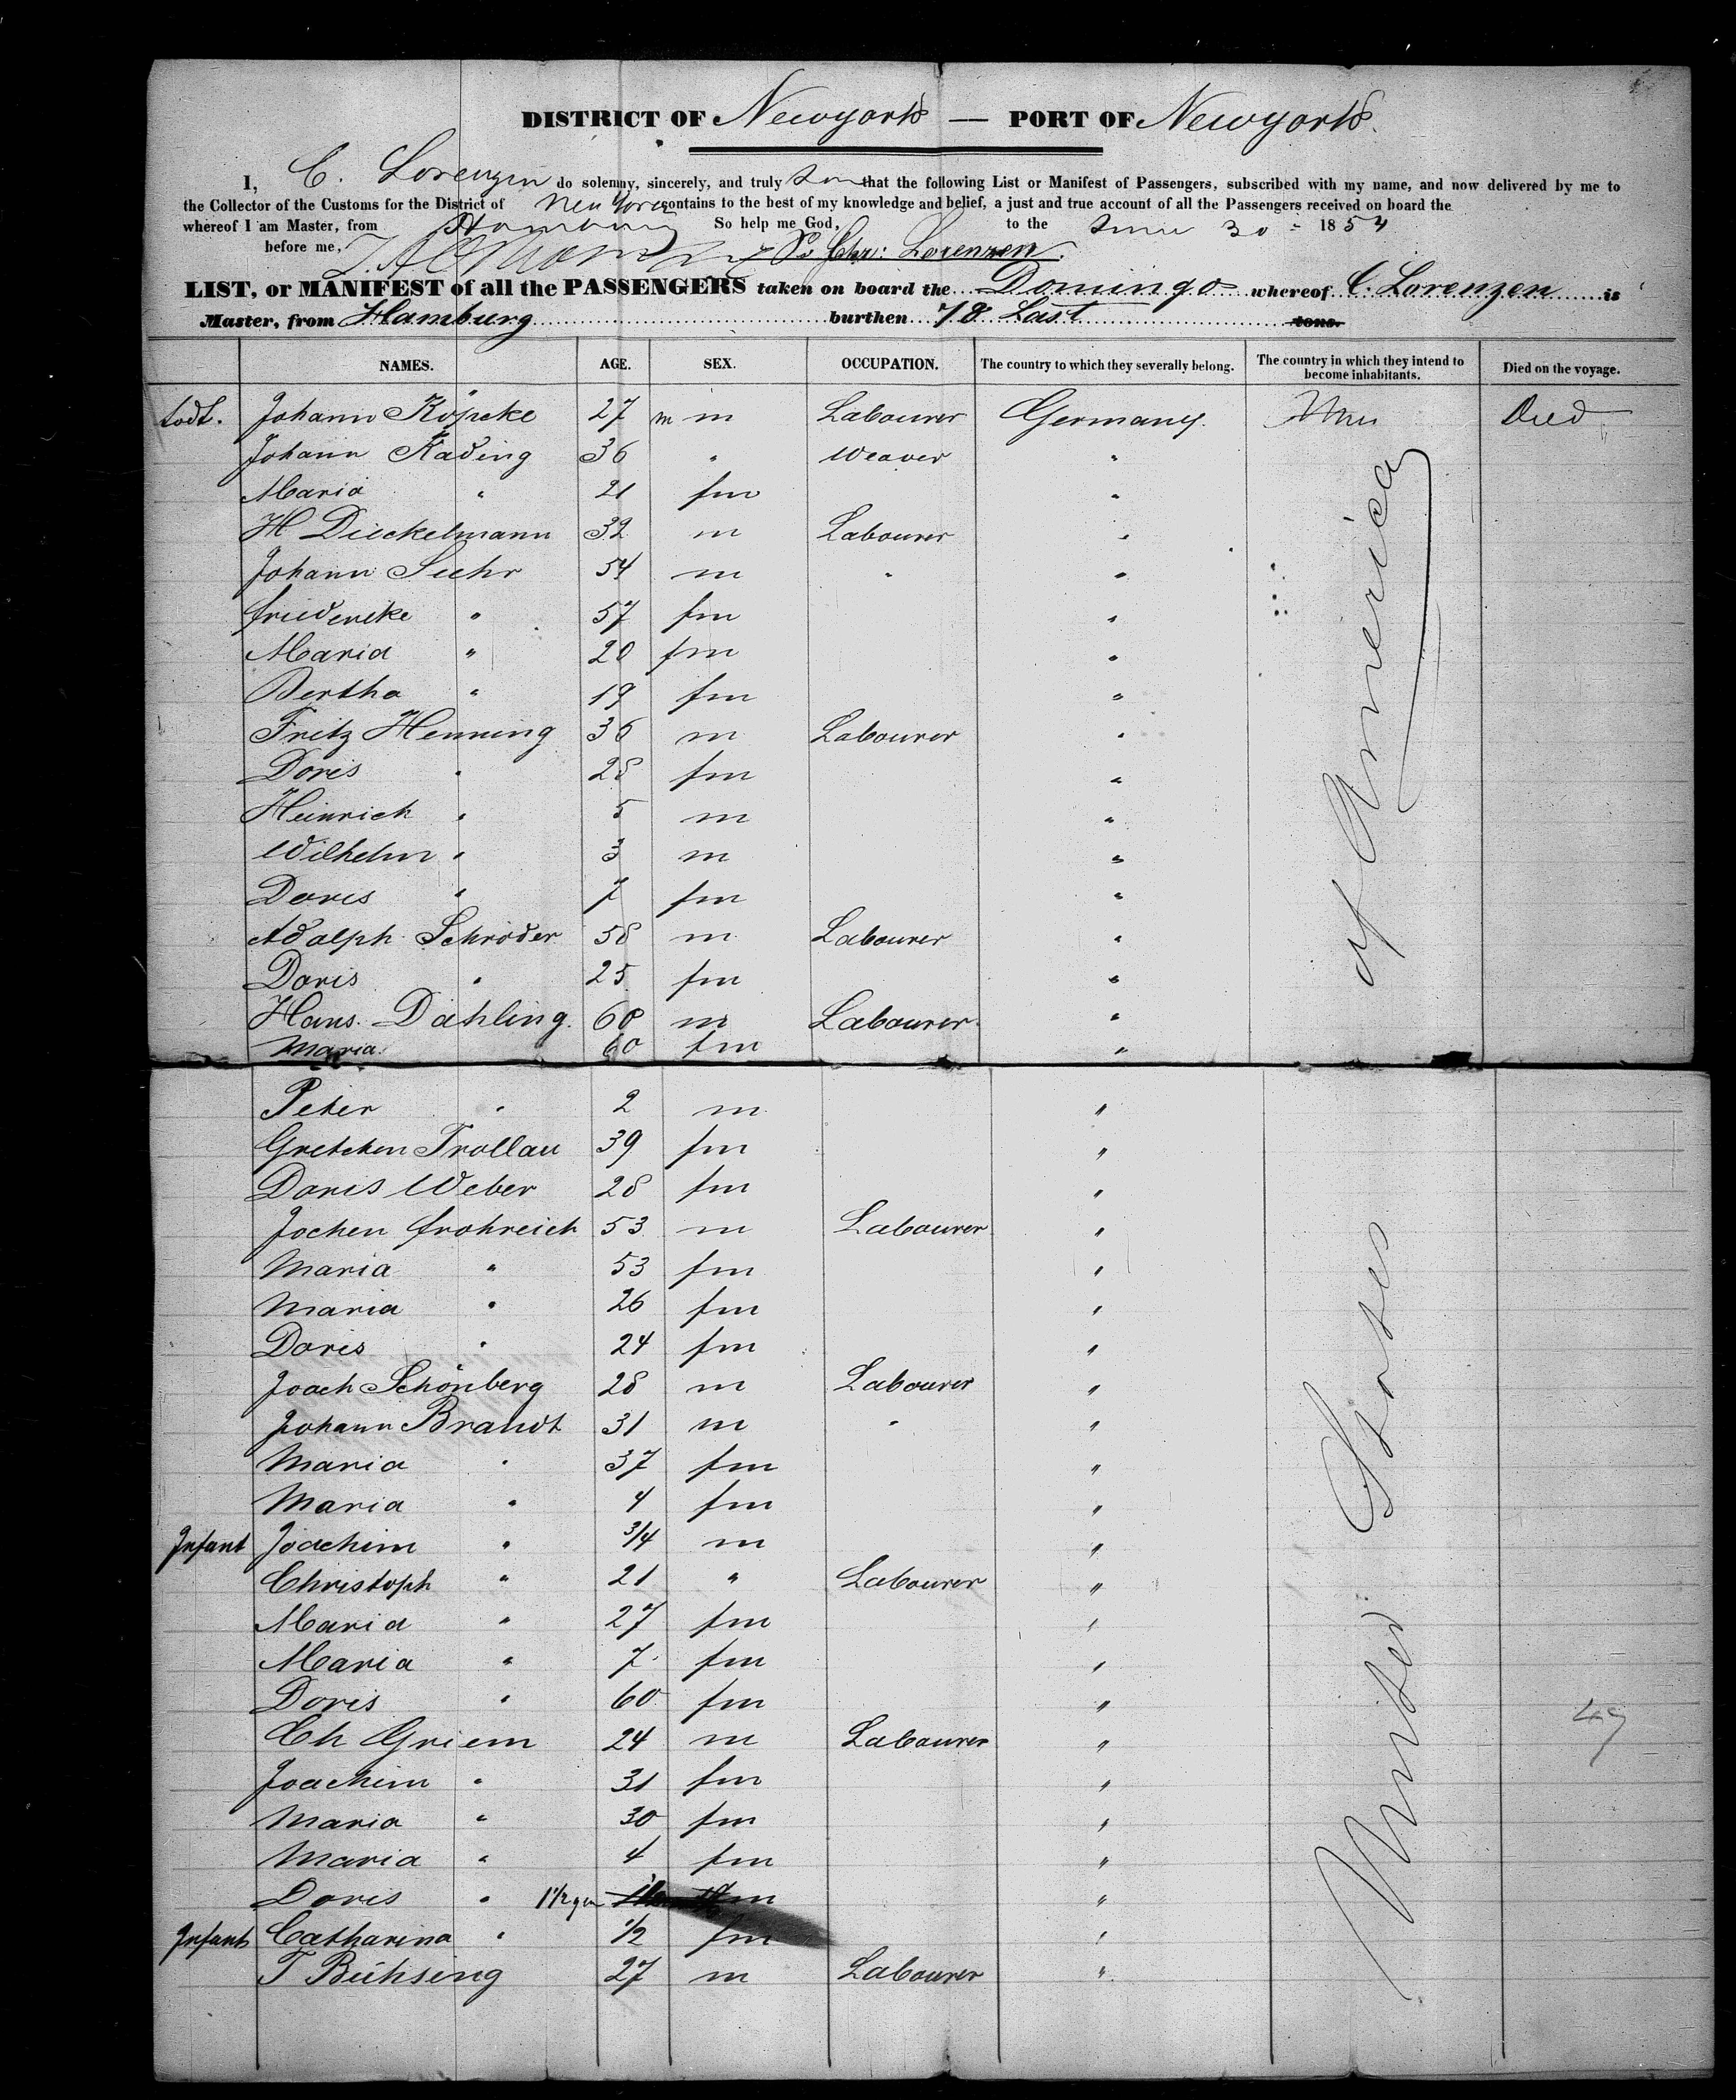 DISTRICT OF Newyork — PORT OF Newyork.
I, C. Lorenzen do solemny, sincerely, and truly that the following List or Manifest of Passengers, subscribed with my name, and now delivered by me to
the Collector of the Customs for the District of New York contains to the best of my knowledge and belief, a just and true account of all the Passengers received on board the
whereof I am Master, from Hamburg So help me God, to the June 30 1854
before me, Chr: Lorenzen.
LIST, or MANIFEST of all the PASSENGERS taken on board the Domingo whereof C. Lorenzen is
Master, from Hamburg burthen 78 Last tons.
NAMES. AGE. SEX. OCCUPATION. The country to which they severally belong. The country in which they intend to become inhabitants. Died on the voyage.
todt. Johann Köpcke 27 m m Labourer Germany. Died
Johann Kading 36 " Weaver "
Maria " 21 fm "
H Dieckelmann 32 m Labourer "
Johann Suhr 54 m " "
friedericke " 57 fm "
Maria " 20 fm "
Bertha " 19 fm "
Fritz Henning 36 m Labourer "
Doris " 28 fm "
Heinrich " 5 m "
Wilhelm " 3 m "
Doris " 7 fm "
Adolph Schroder 58 m Labourer "
Doris " 25 fm "
Hans. Dahling. 60 m Labourer. "
Maria. 60 fm "
Peter " 2 m "
Gretchen Trollau 39 fm "
Doris Weber 28 fm "
Jochen frohreich 53 m Labourer "
Maria " 53 fm "
Maria " 26 fm "
Doris " 24 fm "
Joach Schönberg 28 m Labourer "
Johann Brandt 31 m " "
Maria " 37 fm "
Maria " 4 fm "
Infant Joachim " 3/4 m "
Christoph " 21 " Labourer "
Maria " 27 fm "
Maria " 7 fm "
Doris " 60 fm "
Ch Griem 24 m Labourer "
Joachim " 31 fm "
Maria " 30 fm "
Maria " 4 fm "
Doris " 1 1/2 m "
Infant Catharina " 1/2 fm "
T Bühsing 27 m Labourer "
United States of America
49